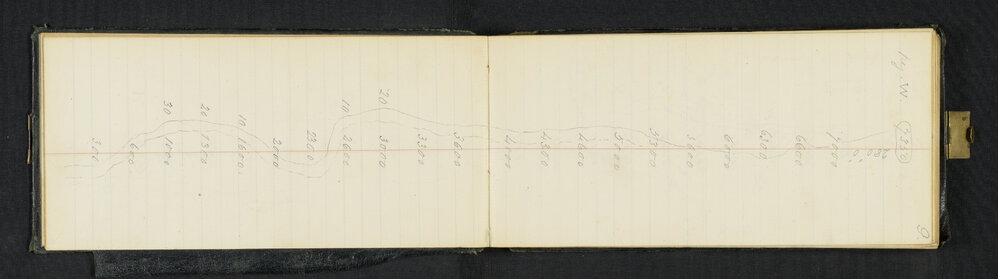 9.
7350
280°
7000
6600
6300
6000
5600
5300
5000
4600
4300
4000
3600
3300
20 3000
10 2600
2300
2000
10 1600
20 1300
30 1000
600
300